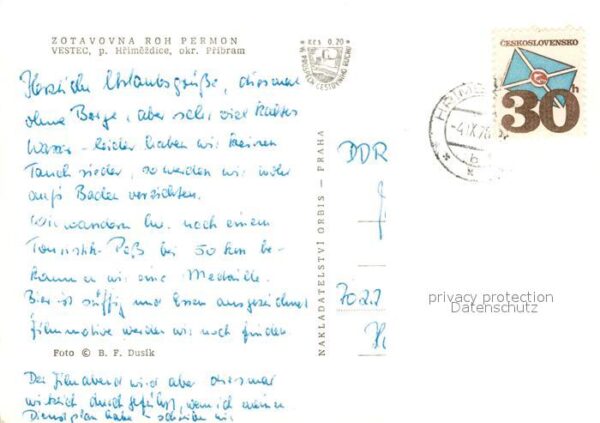 ZOTAVOVNA ROH PERMON
VESTEC, p. Hřiměždice, okr. Příbram
Kčs 0,20
ČESKOSLOVENSKO
30h
-4.IX.76
Herzliche Urlaubsgrüße, diesmal
ohne Berge, aber sehr viel kaltes
Wasser - leider haben wir keinen
Tauchsieder, so werden wir wohl
aufs Baden verzichten.
Wir wandern hier noch einem
Touristik-Paß bei 50 km be-
kommen wir eine Medaille.
Bier ist süffig und Essen ausgezeichnet
Filmmotive werden wir noch finden.
Foto © B. F. Dusík
Der Filmabend wird aber diesmal
wirklich durchgeführt, wenn ich meinen
Dienstplan habe - schreiben wir
NAKLADATELSTVÍ ORBIS — PRAHA
DDR
7022
privacy protection
Datenschutz